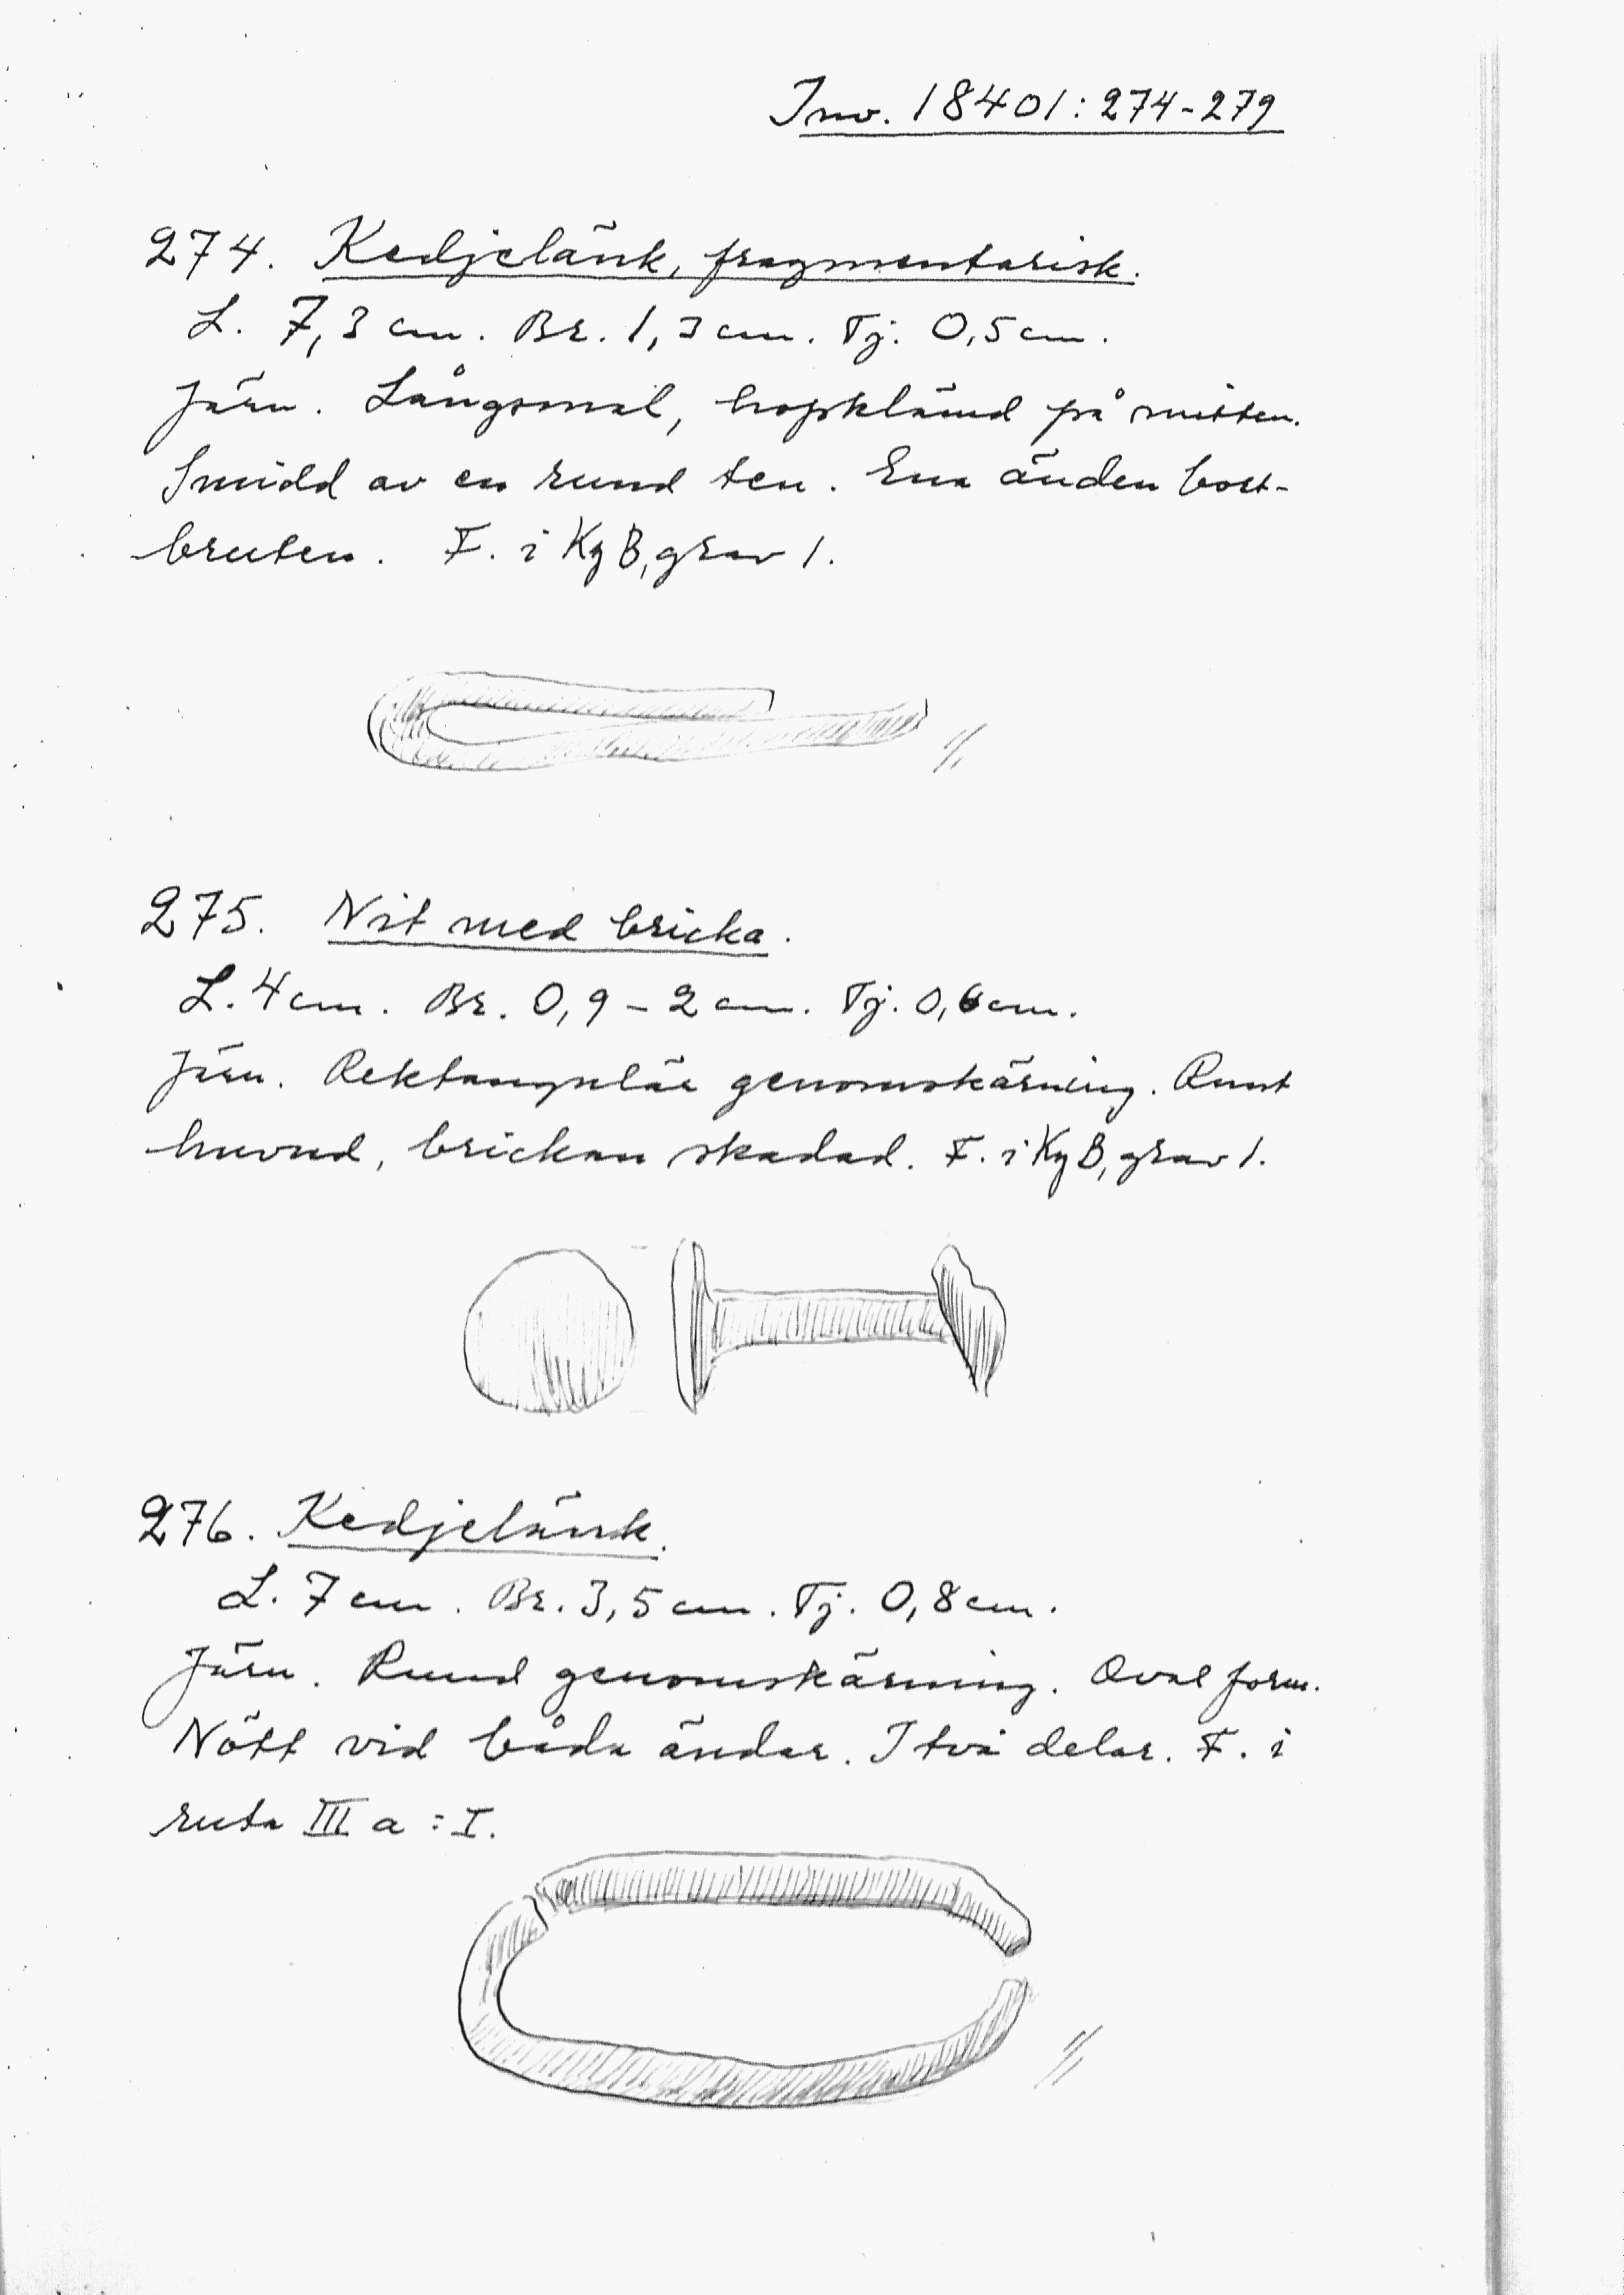 Inv. 18401:274-279
274. Kedjelänk, fragmentarisk.
L. 7,3 cm. Br. 1,3 cm. Tj. 0,5 cm.
Järn. Långsmal, hopklämd på mitten.
Smidd av en rund ten. Ena änden bort-
bruten. F. i Kg B, grav 1.
1/1
275. Nit med bricka.
L. 4 cm. Br. 0,9 - 2 cm. Tj. 0,6 cm.
Järn. Rektangulär genomskärning. Runt
huvud, brickan skadad. F. i Kg B, grav 1.
276. Kedjelänk.
L. 7 cm. Br. 3,5 cm. Tj. 0,8 cm.
Järn. Rund genomskärning. Oval form.
Nött vid båda ändar. I två delar. F. i
ruta III a : I.
1/1